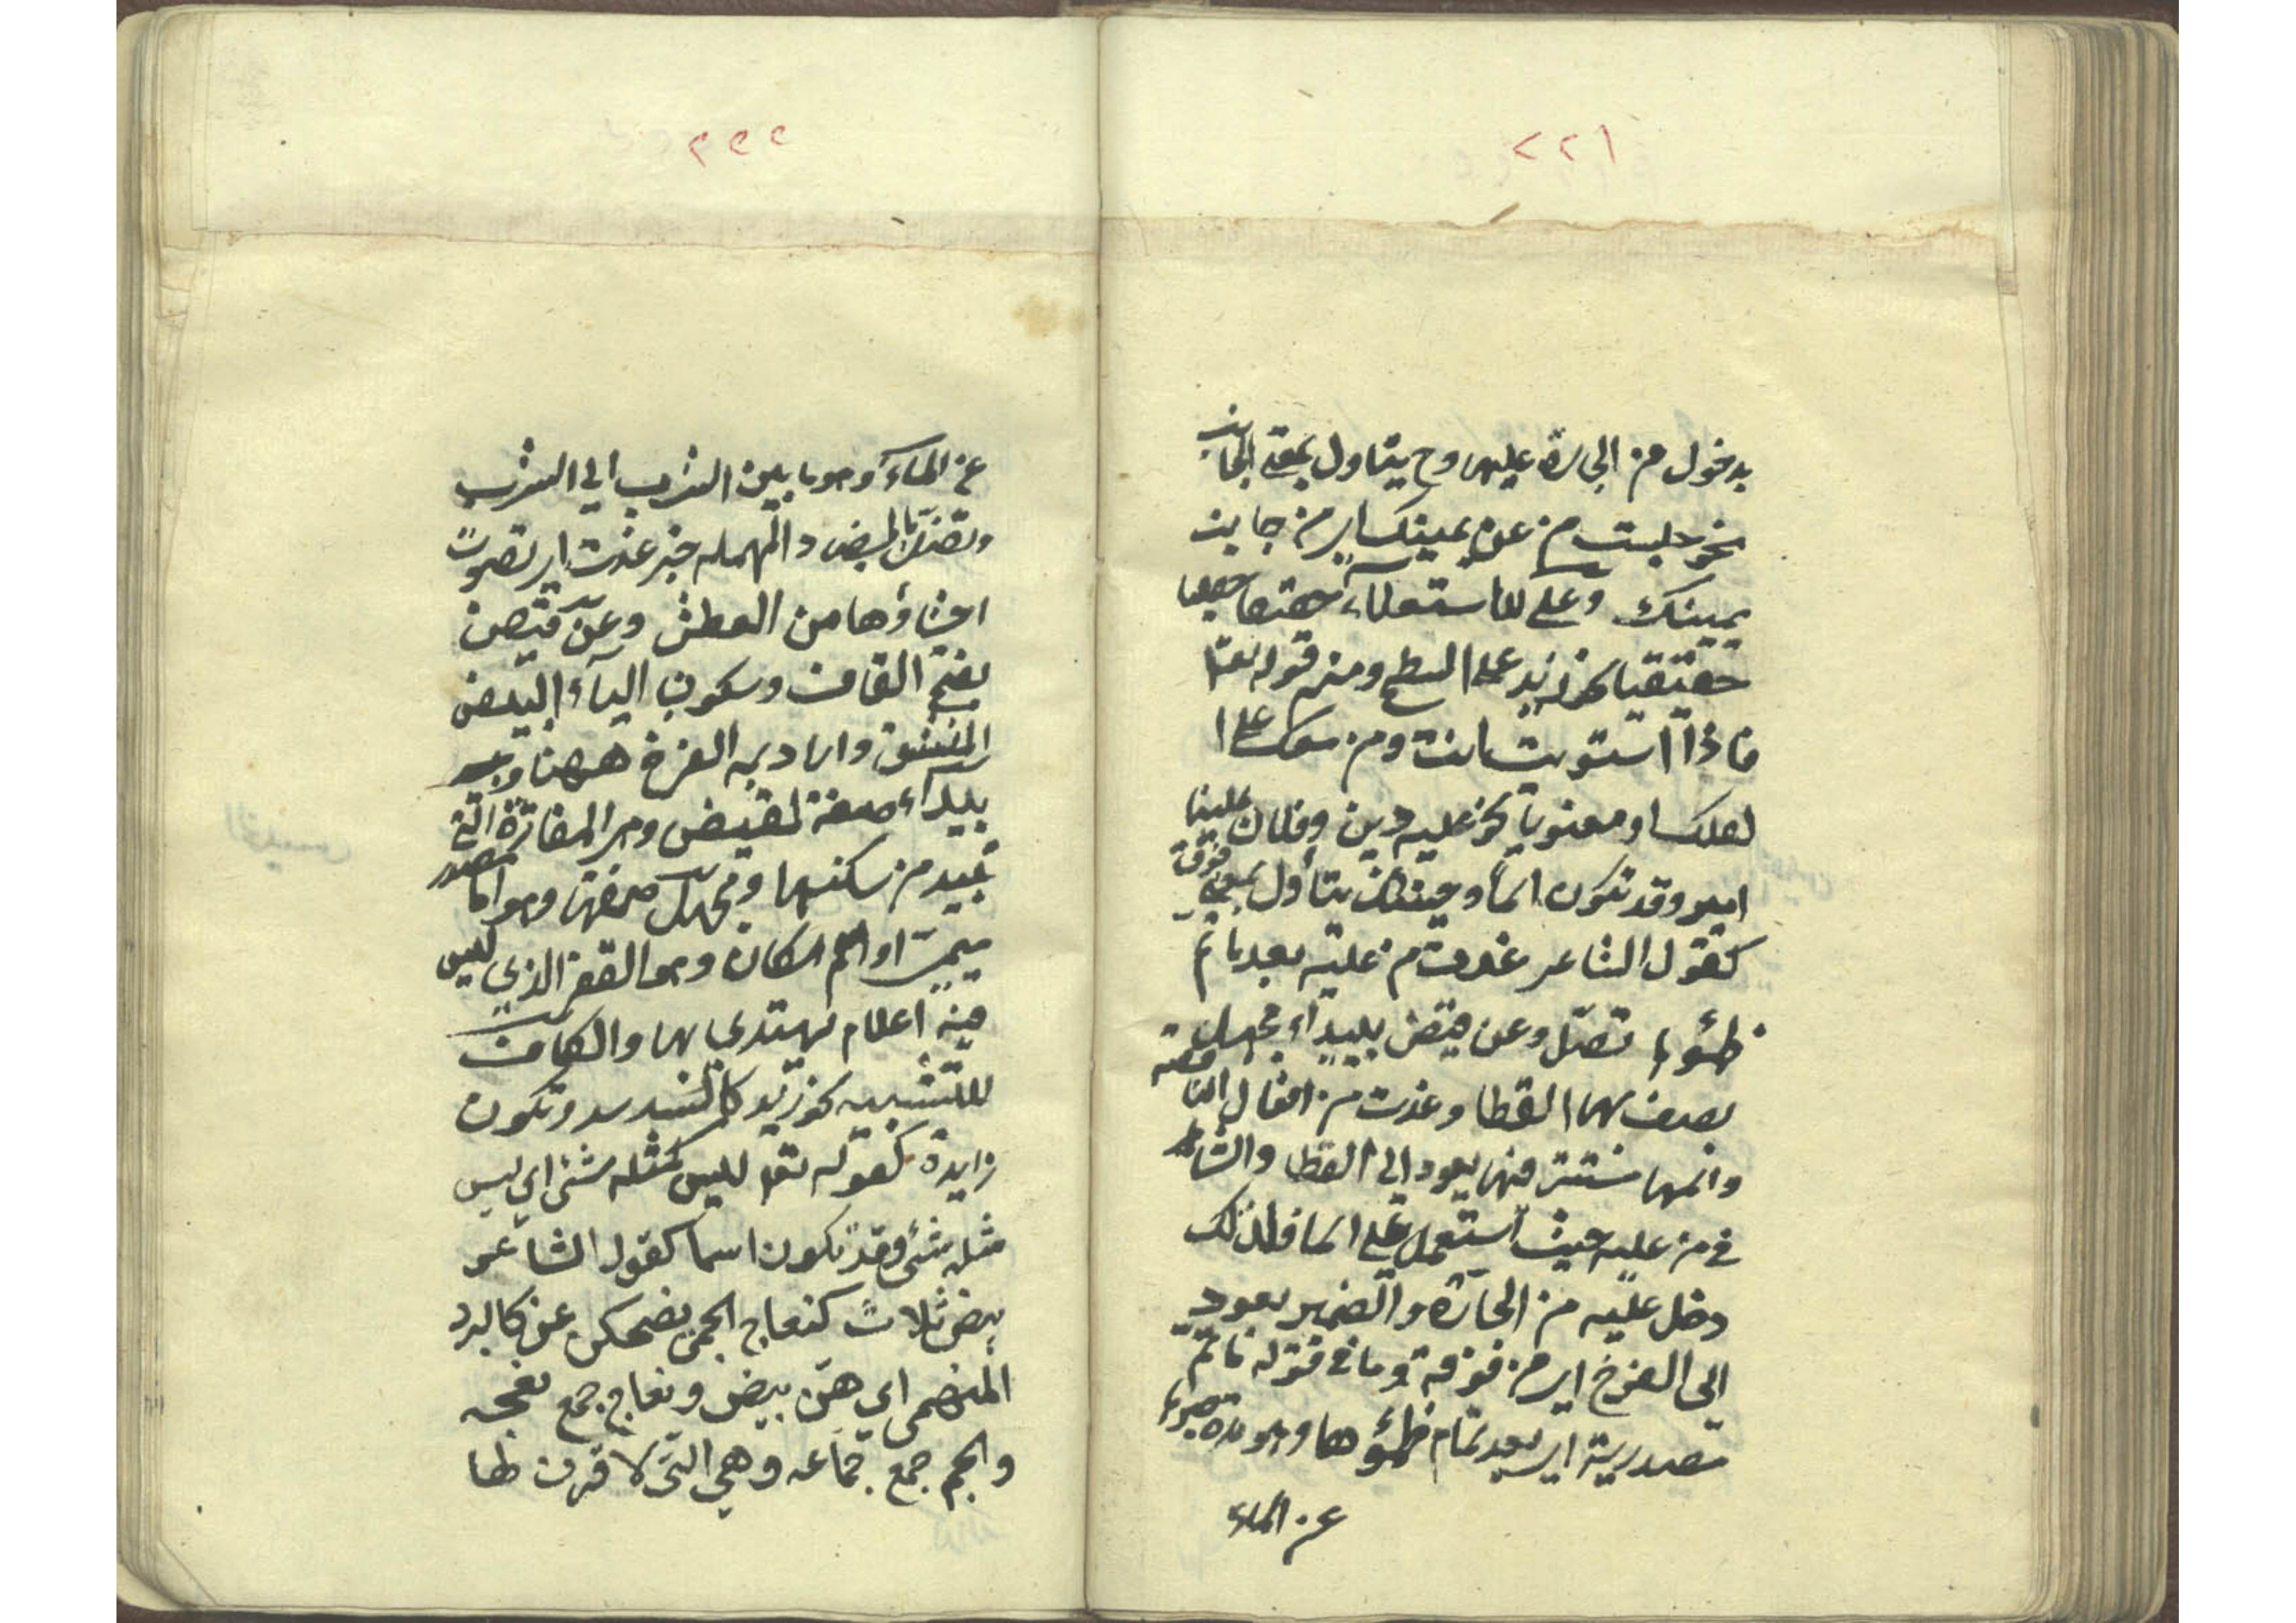 ٢٢١
بدخول من الجارة عليها وح يتاول بمعنى الجانب
نحو جلست من عن يمينك اي من جانب
يمينك وعلى للاستعلاء
حقيقيا نحو زيد على السطح ومنه قوله تعالى
فاذا استويت انت ومن معك على ا
لفلك او معنويا نحو عليه دين وفلان علينا
امير وقد تكون اسما وحينئذ يتأول بمعنى فوق
كقول الشاعر غدت من عليه بعد ما تم
ظمؤها تصل وعن قيض ببيداء مجهل
يصف بها القطا وغدت من افعال الناقصة
واسمها مستتر فيها يعود الى القطا والشاهد
في من عليه حيث استعمل على اسما فلذلك
دخل عليه من الجارة والضمير يعود
الى الفرخ اي من فوقه وما في قوله ما تم
مصدرية اي بعد تمام ظمؤها وهو مدة صبرها
عن الماء
٢٢٢
عن الماء وهو ما بين الشرب الى الشرب
وتصل المهمله خبر غدت اي تصوت
احشاؤها من العطش وعن قيض
بفتح القاف وسكون الياء البيض
المنشق واراد به الفرخ ههنا
ببيداء صفة لقيض وهو المفازة التي
تبيد من سكنها ومجهل صفتها وهو اما مصدر
ميمي او اسم المكان وهو القفر الذي ليس
فيه اعلام يهتدي بها والكاف
للتشبيه نحو زيد كالاسد وتكون
زايدة كقوله تعالى ليس كمثله شئ اي ليس
مثله شئ وقد تكون اسما كقول الشاعر
بيض ثلاث كنعاج الجم يضحكن عن كالبرد
المنهم اي هن بيض ونعاج جمع نعجه
والجم جمع جماعه وهي التي لا قرن لها